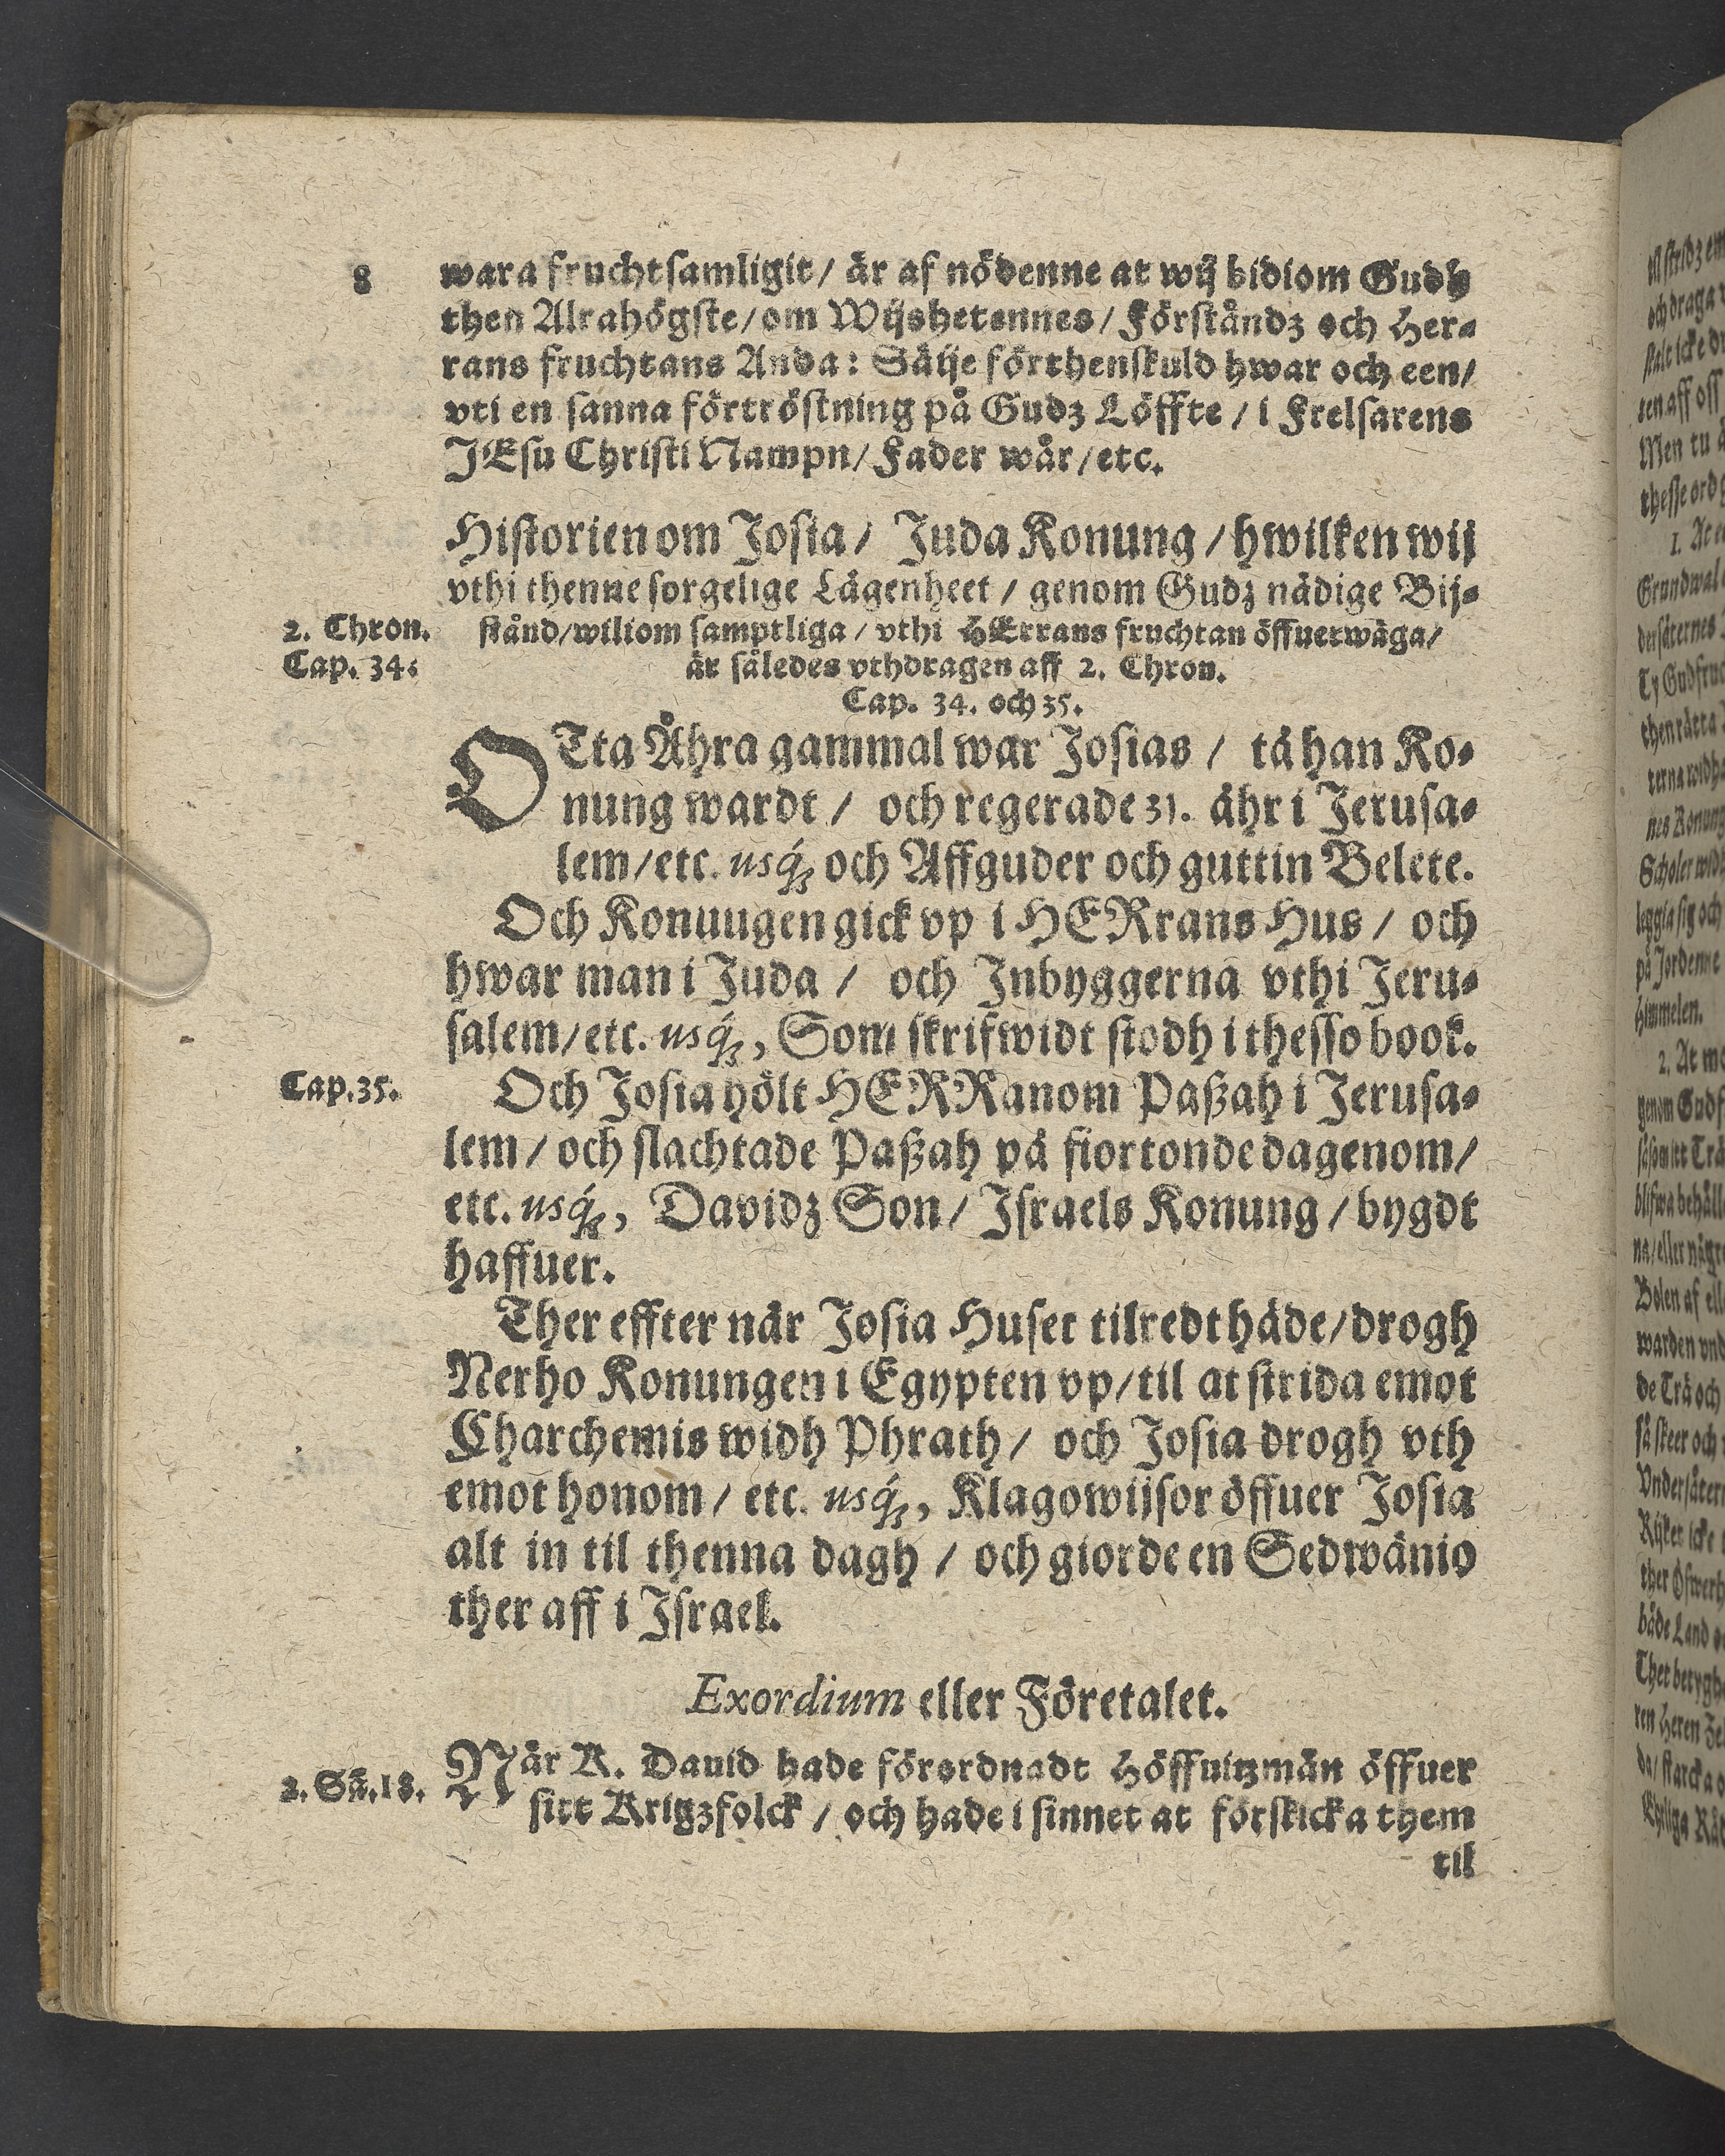 8
wara fruchtsamligit / är af nödenne at wij bidiom Gudh
then Alrahögste / om Wijshetennes / Förståndz och Her-
rans fruchtans Anda: Säije förthenskuld hwar och een /
vti en sanna förtröstning på Gudz Löffte / i Frelsarens
JEsu Christi Nampn / Fader wår / etc.
Historien om Josia / Juda Konung / hwilken wij
vthi thenne sorgelige Lägenheet / genom Gudz nådige Bij-
2. Chron.
Cap. 34.
stånd / wiliom samptliga / vthi HErrans fruchtan öffuerwäga /
är således vthdragen aff 2. Chron.
Cap. 34. och 35.
OTta Åhra gammal war Josias / tå han Ko-
nung wardt / och regerade 31. åhr i Jerusa-
lem / etc. usq́; och Affguder och guttin Belete.
Och Konuugen gick vp i HERrans Hus / och
hwar man i Juda / och Inbyggerna vthi Jeru-
salem / etc. usq́;, Som skrifwidt stodh i thesso book.
Cap. 35.
Och Josia hölt HERRanom Paßah i Jerusa-
lem / och slachtade Paßah på fiortonde dagenom /
etc. usq́;, Davidz Son / Israels Konung / bygdt
haffuer.
Ther effter når Josia Huset tilredt håde / drogh
Nerho Konungen i Egypten vp / til at strida emot
Charchemis widh Phrath / och Josia drogh vth
emot honom / etc. usq́;, Klagowijsor öffuer Josia
alt in til thenna dagh / och giorde en Sedwänio
ther aff i Israel.
Exordium eller Företalet.
2. Sã. 18.
När K. Dauid hade förordnadt Höffuitzmän öffuer
sitt Krigzfolck / och hade i sinnet at förskicka them
til